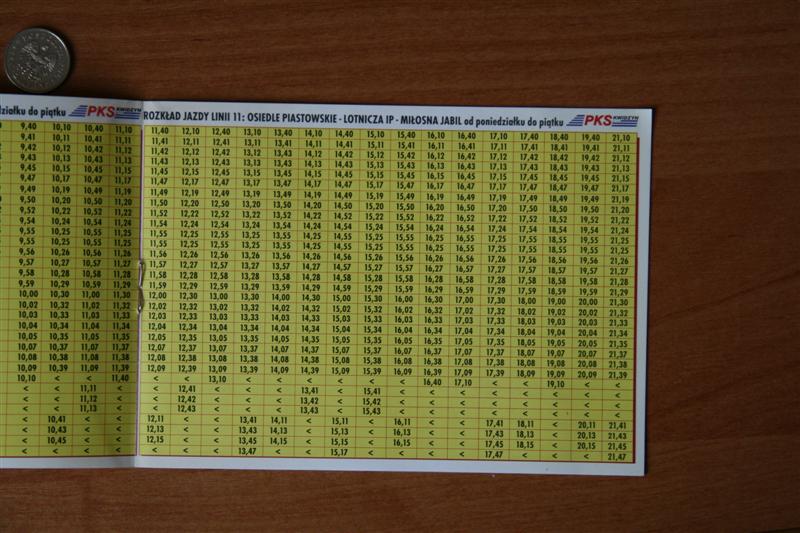 działku do piątku PKS KWIDZYN
9,40 10,10 10,40 11,10
9,41 10,11 10,41 11,11
9,42 10,12 10,42 11,12
9,43 10,13 10,43 11,13
9,45 10,15 10,45 11,15
9,47 10,17 10,47 11,17
9,49 10,19 10,49 11,19
9,50 10,20 10,50 11,20
9,52 10,22 10,52 11,22
9,54 10,24 10,54 11,24
9,55 10,25 10,55 11,25
9,55 10,25 10,55 11,25
9,56 10,26 10,56 11,26
9,57 10,27 10,57 11,27
9,58 10,28 10,58 11,28
9,59 10,29 10,59 11,29
10,00 10,30 11,00 11,30
10,02 10,32 11,02 11,32
10,03 10,33 11,03 11,33
10,04 10,34 11,04 11,34
10,05 10,35 11,05 11,35
10,07 10,37 11,07 11,37
10,08 10,38 11,08 11,38
10,09 10,39 11,09 11,39
10,10 < < 11,40
< < 11,11 <
< < 11,12 <
< < 11,13 <
< 10,41 < <
< 10,43 < <
< 10,45 < <
< < < <
ROZKŁAD JAZDY LINII 11: OSIEDLE PIASTOWSKIE - LOTNICZA IP - MIŁOSNA JABIL od poniedziałku do piątku PKS KWIDZYN
11,40 12,10 12,40 13,10 13,40 14,10 14,40 15,10 15,40 16,10 16,40 17,10 17,40 18,40 19,40 21,10
11,41 12,11 12,41 13,11 13,41 14,11 14,41 15,11 15,41 16,11 16,41 17,11 17,41 18,41 19,41 21,11
11,42 12,12 12,42 13,12 13,42 14,12 14,42 15,12 15,42 16,12 16,42 17,12 17,42 18,42 19,42 21,12
11,43 12,13 12,43 13,13 13,43 14,13 14,43 15,13 15,43 16,13 16,43 17,13 17,43 18,43 19,43 21,13
11,45 12,15 12,45 13,15 13,45 14,15 14,45 15,15 15,45 16,15 16,45 17,15 17,45 18,45 19,45 21,15
11,47 12,17 12,47 13,17 13,47 14,17 14,47 15,17 15,47 16,17 16,47 17,17 17,47 18,47 19,47 21,17
11,49 12,19 12,49 13,19 13,49 14,19 14,49 15,19 15,49 16,19 16,49 17,19 17,49 18,49 19,49 21,19
11,50 12,20 12,50 13,20 13,50 14,20 14,50 15,20 15,50 16,20 16,50 17,20 17,50 18,50 19,50 21,20
11,52 12,22 12,52 13,22 13,52 14,22 14,52 15,22 15,52 16,22 16,52 17,22 17,52 18,52 19,52 21,22
11,54 12,24 12,54 13,24 13,54 14,24 14,54 15,24 15,54 16,24 16,54 17,24 17,54 18,54 19,54 21,24
11,55 12,25 12,55 13,25 13,55 14,25 14,55 15,25 15,55 16,25 16,55 17,25 17,55 18,55 19,55 21,25
11,55 12,25 12,55 13,25 13,55 14,25 14,55 15,25 15,55 16,25 16,55 17,25 17,55 18,55 19,55 21,25
11,56 12,26 12,56 13,26 13,56 14,26 14,56 15,26 15,56 16,26 16,56 17,26 17,56 18,56 19,56 21,26
11,57 12,27 12,57 13,27 13,57 14,27 14,57 15,27 15,57 16,27 16,57 17,27 17,57 18,57 19,57 21,27
11,58 12,28 12,58 13,28 13,58 14,28 14,58 15,28 15,58 16,28 16,58 17,28 17,58 18,58 19,58 21,28
11,59 12,29 12,59 13,29 13,59 14,29 14,59 15,29 15,59 16,29 16,59 17,29 17,59 18,59 19,59 21,29
12,00 12,30 13,00 13,30 14,00 14,30 15,00 15,30 16,00 16,30 17,00 17,30 18,00 19,00 20,00 21,30
12,02 12,32 13,02 13,32 14,02 14,32 15,02 15,32 16,02 16,32 17,02 17,32 18,02 19,02 20,02 21,32
12,03 12,33 13,03 13,33 14,03 14,33 15,03 15,33 16,03 16,33 17,03 17,33 18,03 19,03 20,03 21,33
12,04 12,34 13,04 13,34 14,04 14,34 15,04 15,34 16,04 16,34 17,04 17,34 18,04 19,04 20,04 21,34
12,05 12,35 13,05 13,35 14,05 14,35 15,05 15,35 16,05 16,35 17,05 17,35 18,05 19,05 20,05 21,35
12,07 12,37 13,07 13,37 14,07 14,37 15,07 15,37 16,07 16,37 17,07 17,37 18,07 19,07 20,07 21,37
12,08 12,38 13,08 13,38 14,08 14,38 15,08 15,38 16,08 16,38 17,08 17,38 18,08 19,08 20,08 21,38
12,09 12,39 13,09 13,39 14,09 14,39 15,09 15,39 16,09 16,39 17,09 17,39 18,09 19,09 20,09 21,39
< < 13,10 < < < < < < 16,40 17,10 < < 19,10 < <
< 12,41 < < < 13,41 < 15,41 < < < < < < < <
< 12,42 < < < 13,42 < 15,42 < < < < < < < <
< 12,43 < < < 13,43 < 15,43 < < < < < < < <
12,11 < < 13,41 14,11 < 15,11 < 16,11 < < 17,41 18,11 < 20,11 21,41
12,13 < < 13,43 14,13 < 15,13 < 16,13 < < 17,43 18,13 < 20,13 21,43
12,15 < < 13,45 14,15 < 15,15 < 16,15 < < 17,45 18,15 < 20,15 21,45
< < < 13,47 < < 15,17 < < < < 17,47 < < < 21,47